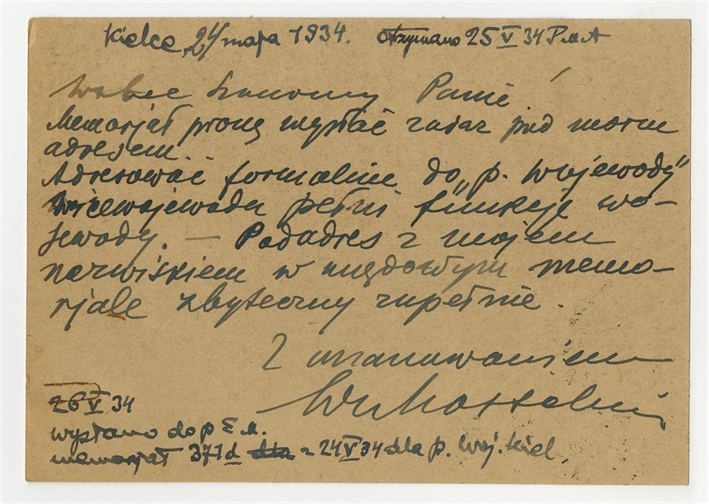 Kielce, 24/maja 1934. otrzymano 25 V 34 P.M.A
Wobec Szanowny Panie!
Memorjał proszę wysłać zaraz pod moim
adresem.
Adresować formalnie do "p. Wojewody"
Wicewojewoda pełni funkcję wo-
jewody. — Podadres z mojem
nazwiskiem w memo-
rjale zbyteczny zupełnie.
Z uszanowaniem
26 V 34
wysłano do p E.M.
memorjał 371d dla z 24 V 34 dla p. Woj. kiel.